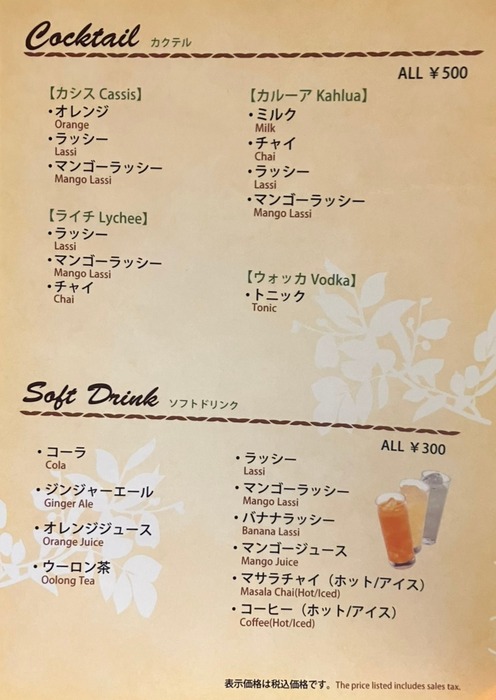 Cocktail カクテル
ALL ¥500
【カシス Cassis】
・オレンジ
Orange
・ラッシー
Lassi
・マンゴーラッシー
Mango Lassi
【ライチ Lychee】
・ラッシー
Lassi
・マンゴーラッシー
Mango Lassi
・チャイ
Chai
【カルーア Kahlua】
・ミルク
Milk
・チャイ
Chai
・ラッシー
Lassi
・マンゴーラッシー
Mango Lassi
【ウォッカ Vodka】
・トニック
Tonic
Soft Drink ソフトドリンク
ALL ¥300
・コーラ
Cola
・ジンジャーエール
Ginger Ale
・オレンジジュース
Orange Juice
・ウーロン茶
Oolong Tea
・ラッシー
Lassi
・マンゴーラッシー
Mango Lassi
・バナナラッシー
Banana Lassi
・マンゴージュース
Mango Juice
・マサラチャイ（ホット/アイス）
Masala Chai(Hot/Iced)
・コーヒー（ホット/アイス）
Coffee(Hot/Iced)
表示価格は税込価格です。The price listed includes sales tax.